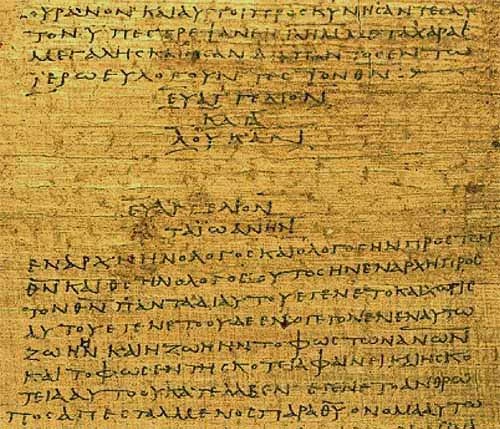 ΟΥΡΑΝΟΝ ΚΑΙ ΑΥΤΟΙ ΠΡΟϹΚΥΝΗϹΑΝΤΕϹ ΑΥ
ΤΟΝ ΥΠΕϹΤΡΕΨΑΝ ΜΕΤΑ ΧΑΡΑϹ
ΜΕΓΑΛΗϹ ΚΑΙ ΗϹΑΝ ΔΙΑ ΠΑΝΤΟϹ ΕΝ ΤΩ
ΪΕΡΩ ΕΥΛΟΓΟΥΝΤΕϹ ΤΟΝ Θ̅Ν̅
ΕΥΑΓΓΕΛΙΟΝ
ΚΑΤΑ
ΛΟΥΚΑΝ
ΕΥΑΓΓΕΛΙΟΝ
ΚΑΤΑ ΪΩΑΝΗΝ
ΕΝ ΑΡΧΗ ΗΝ Ο ΛΟΓΟϹ ΚΑΙ Ο ΛΟΓΟϹ ΗΝ ΠΡΟϹ ΤΟΝ
Θ̅Ν̅ ΚΑΙ Θ̅Ϲ̅ ΗΝ Ο ΛΟΓΟϹ ΟΥΤΟϹ ΗΝ ΕΝ ΑΡΧΗ ΠΡΟϹ
ΤΟΝ Θ̅Ν̅ ΠΑΝΤΑ ΔΙ ΑΥΤΟΥ ΕΓΕΝΕΤΟ ΚΑΙ ΧΩΡΙϹ
ΑΥΤΟΥ ΕΓΕΝΕΤΟ ΟΥΔΕ ΕΝ Ο ΓΕΓΟΝΕΝ ΕΝ ΑΥΤΩ
ΖΩΗ ΗΝ ΚΑΙ Η ΖΩΗ ΗΝ ΤΟ ΦΩϹ ΤΩΝ Α̅Ν̅Ω̅Ν̅
ΚΑΙ ΤΟ ΦΩϹ ΕΝ ΤΗ ϹΚΟΤΕΙΑ ΦΑΙΝΕΙ ΚΑΙ Η ϹΚΟ
ΤΕΙΑ ΑΥΤΟ ΟΥ ΚΑΤΕΛΑΒΕΝ ΕΓΕΝΕΤΟ ΑΝΘΡΩ
ΠΟϹ ΑΠΕϹΤΑΛΜΕΝΟϹ ΠΑΡΑ Θ̅Υ̅ ΟΝΟΜΑ ΑΥΤΩ